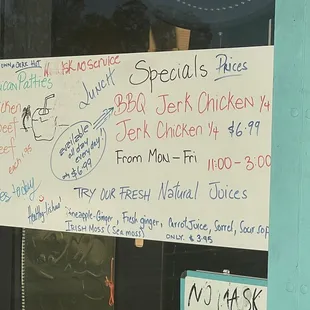 Mask NO SERVICE
Patties
Lunch
Specials Prices
BBQ Jerk Chicken 1/4
Jerk Chicken 1/4 $6.99
available
all day
every day
$6.99
From Mon-Fri
11:00-3:00
TRY OUR FRESH Natural Juices
Pineapple-Ginger, Fresh ginger, Carrot Juice, Sorrel, Sour sop
IRISH MOSS (Sea moss)
ONLY $3.95
today
NO MASK